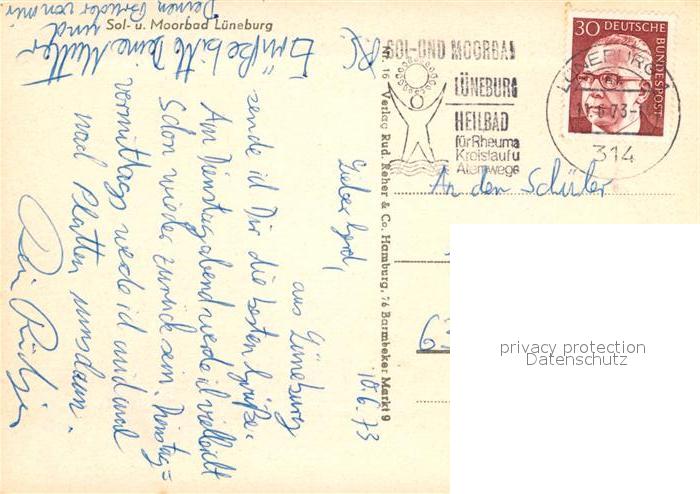 Sol- u. Moorbad Lüneburg
SOL-UND MOORBAD
LÜNEBURG
HEILBAD
für Rheuma
Kreislauf u
Atemwege
30 DEUTSCHE BUNDESPOST
LÜNEBURG
11.6.73
314
An den Schüler
Nr. 16 Verlag Rud. Reher & Co. Hamburg, 76 Barmbeker Markt 9
10.6.73
Lieber Gerd,
aus Lüneburg
sende ich Dir die besten Grüße.
Am Dienstagabend werde ich vielleicht
schon wieder zurück sein. Dienstag=
vormittags werde ich mich mal
nach Platten umschaun.
Dein Rüdiger
Grüße bitte Deine Mutter
und
Deinen Bruder von mir
privacy protection
Datenschutz